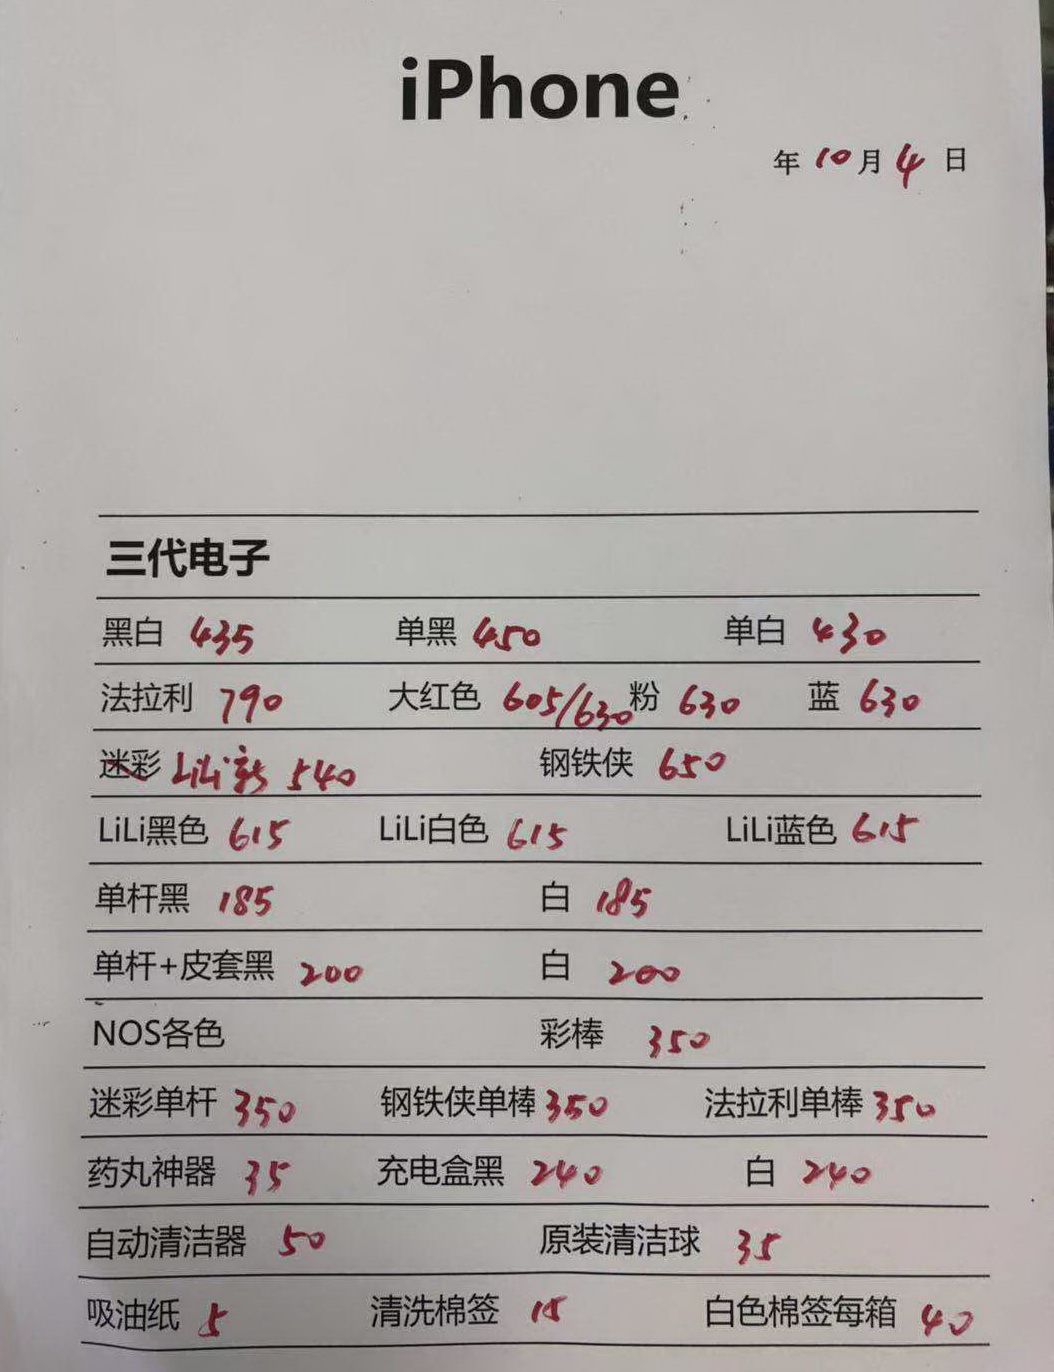 iPhone
年 10 月 4 日
三代电子
黑白 435 单黑 450 单白 430
法拉利 790 大红色 605/630 粉 630 蓝 630
迷彩 LiLi新 540 钢铁侠 650
LiLi黑色 615 LiLi白色 615 LiLi蓝色 615
单杆黑 185 白 185
单杆+皮套黑 200 白 200
NOS各色 彩棒 350
迷彩单杆 350 钢铁侠单棒 350 法拉利单棒 350
药丸神器 35 充电盒黑 240 白 240
自动清洁器 50 原装清洁球 35
吸油纸 5 清洗棉签 15 白色棉签每箱 40